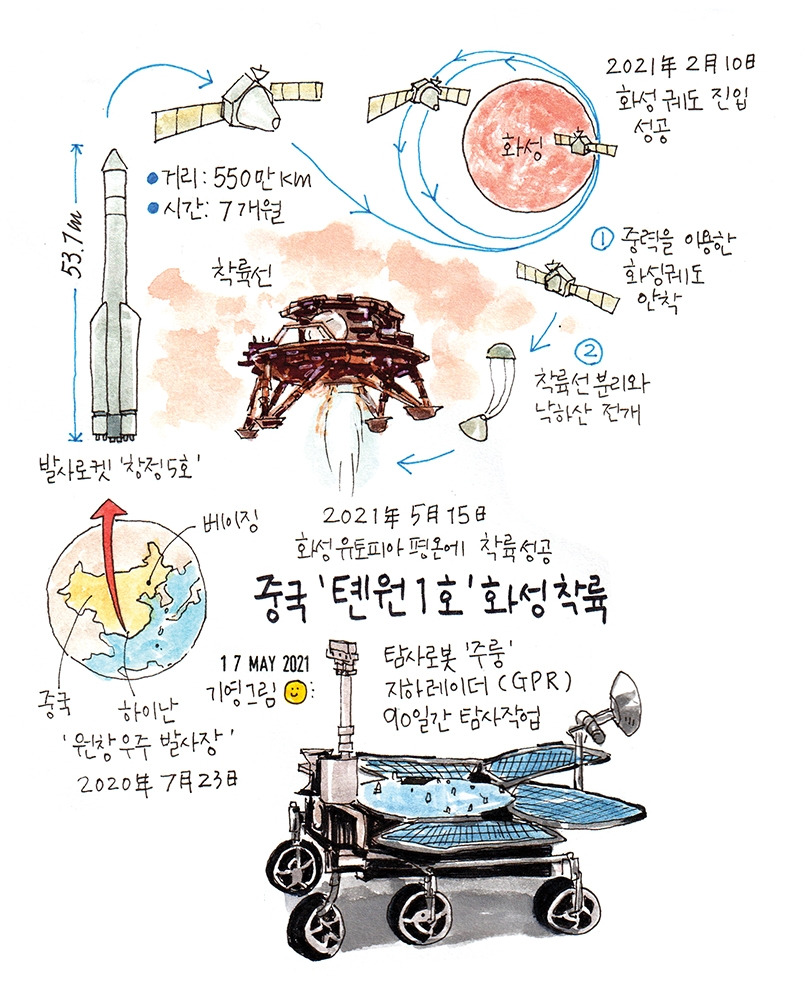 2021年 2月10日
화성 궤도 진입
성공
화성
거리: 550만 km
시간: 7개월
53.7m
착륙선
① 중력을 이용한
화성궤도
안착
②
착륙선 분리와
낙하산 전개
발사로켓 '창정5호'
베이징
2021年 5月 15日
화성 유토피아 평온에 착륙성공
중국 '톈원1호' 화성착륙
17 MAY 2021
기영그림
탐사로봇 '주룽'
지하레이더 (GPR)
90일간 탐사작업
중국
하이난
'원창우주 발사장'
2020年 7月23日